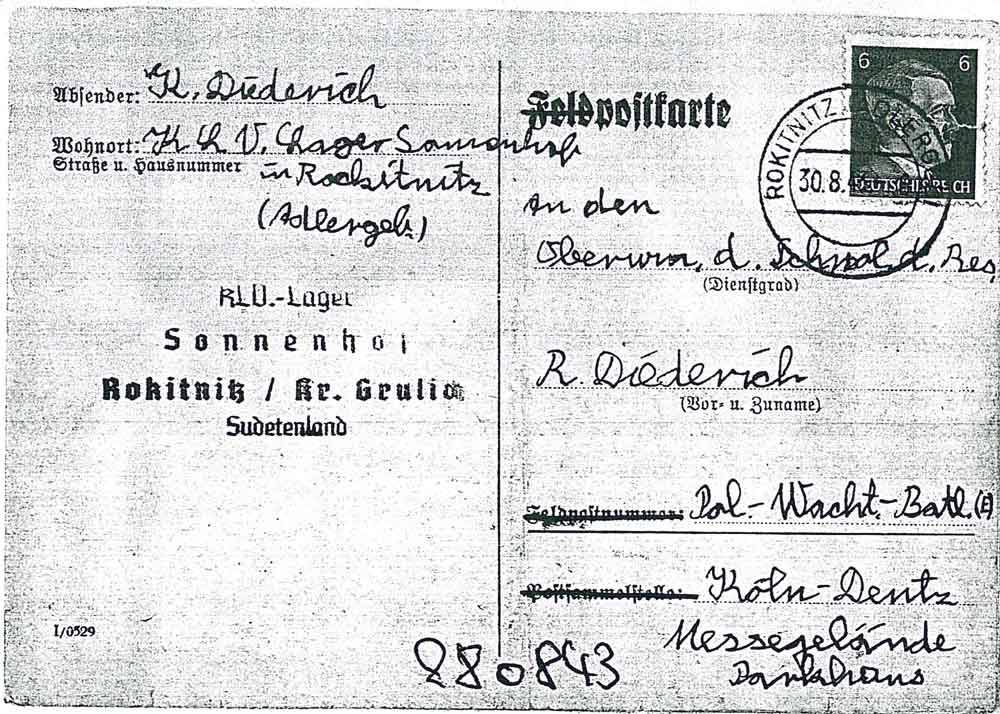 Absender: K. Diederich
Wohnort: K L V. Lager Sonnenhof
Straße u. Hausnummer in Rockitnitz
(Adlergeb.)
KLV.-Lager
Sonnenhof
Rokitnitz / Kr. Grulich
Sudetenland
I/0529
Feldpostkarte
6 6
DEUTSCHES REICH
ROKITNITZ
30.8.
An den
Oberw. d. Schp. d. Res
(Dienstgrad)
R. Diederich
(Vor- u. Zuname)
Feldpostnummer: Pol-Wacht-Batl. (E)
Postsammelstelle: Köln-Deutz
Messegelände
Parkhaus
280843